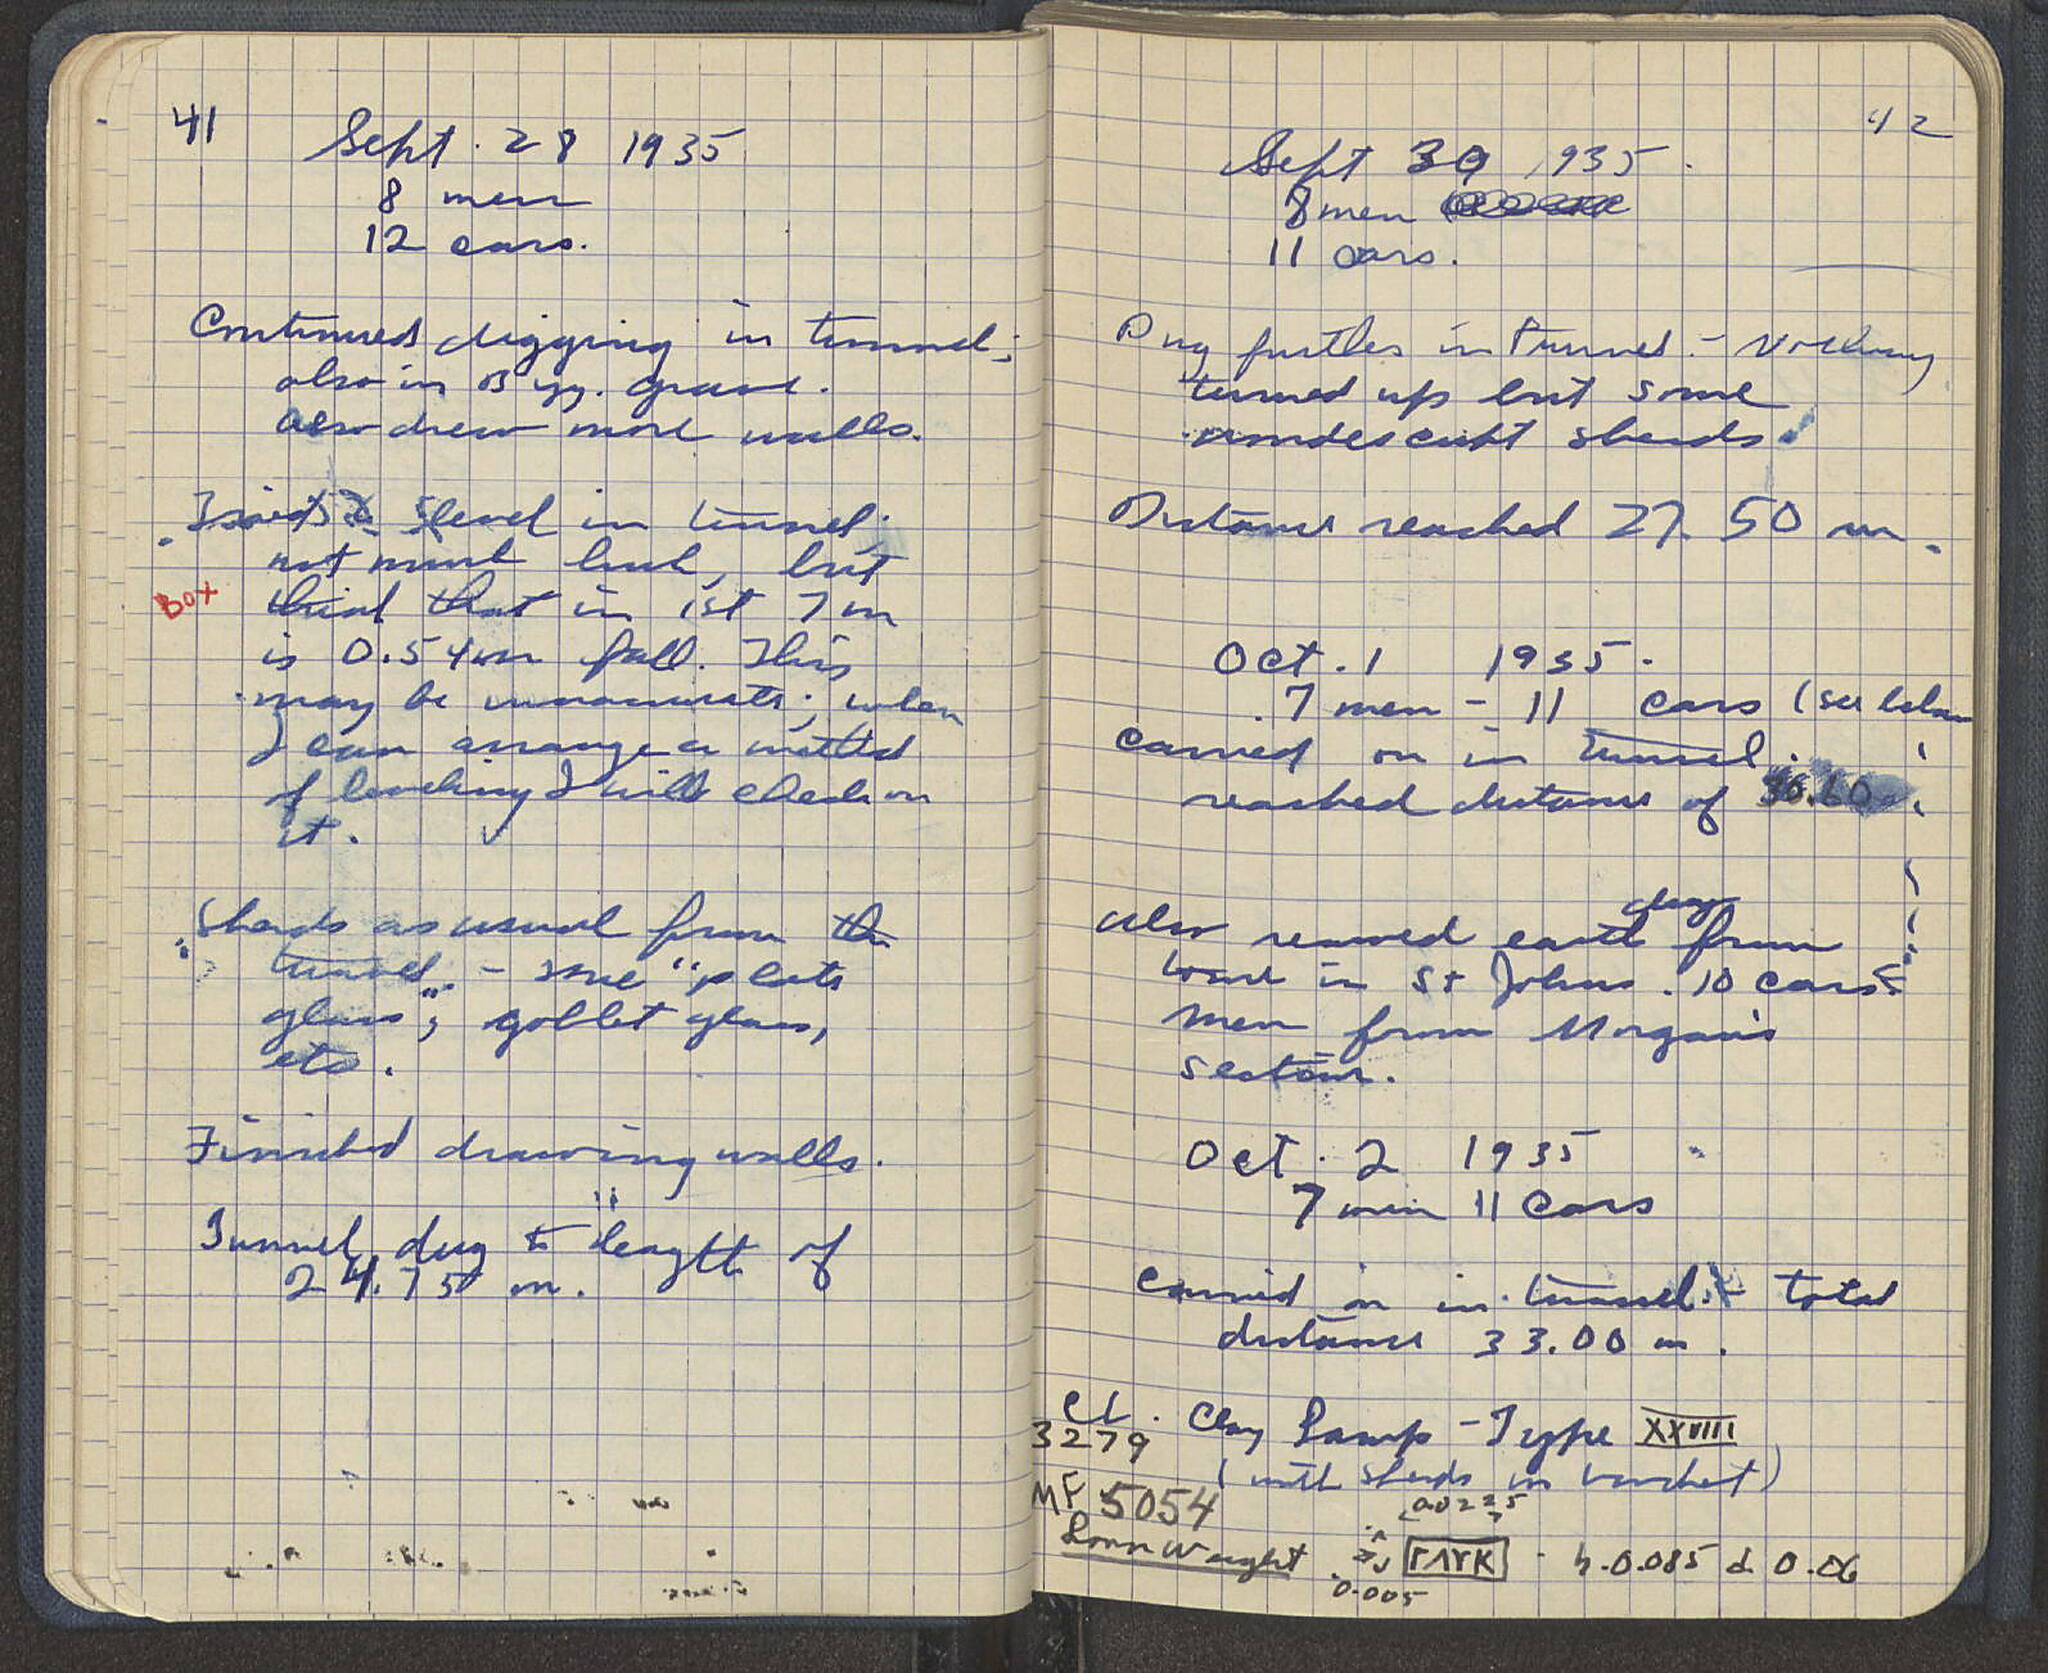 41
Sept. 28 1935
8 men
12 cars.
Continued digging in tunnel;
also in Byz. grave.
Also drew more walls.
level in tunnel;
not much luck, but
think that in 1st 7 m
Box
is 0.54 m fall. This
may be inaccurate; when
I can arrange a method
of leveling I will check on
it.
Sherds as usual from the
tunnel. - some "plate
glass", goblet glass,
etc.
Finished drawing walls.
Tunnel dug to length of
24.75 m.
42
Sept 30 1935.
8 men
11 cars.
Dug further in tunnel - Nothing
turned up but some
nondescript sherds.
Distance reached 27.50 m.
Oct. 1 1935.
7 men - 11 cars (see below
Carried on in tunnel.
reached distance of 30.60
dug
Also removed earth from
in St Johns. 10 cars
men from Morgan's
section.
Oct. 2 1935
7 men 11 cars
Carried on in tunnel - total
distance 33.00 m.
CL. Clay Lamp - Type XXVIII
3279
(with sherds in basket)
MF 5054
0.0225
Loom Weight
h. 0.085 d. 0.06
0.005